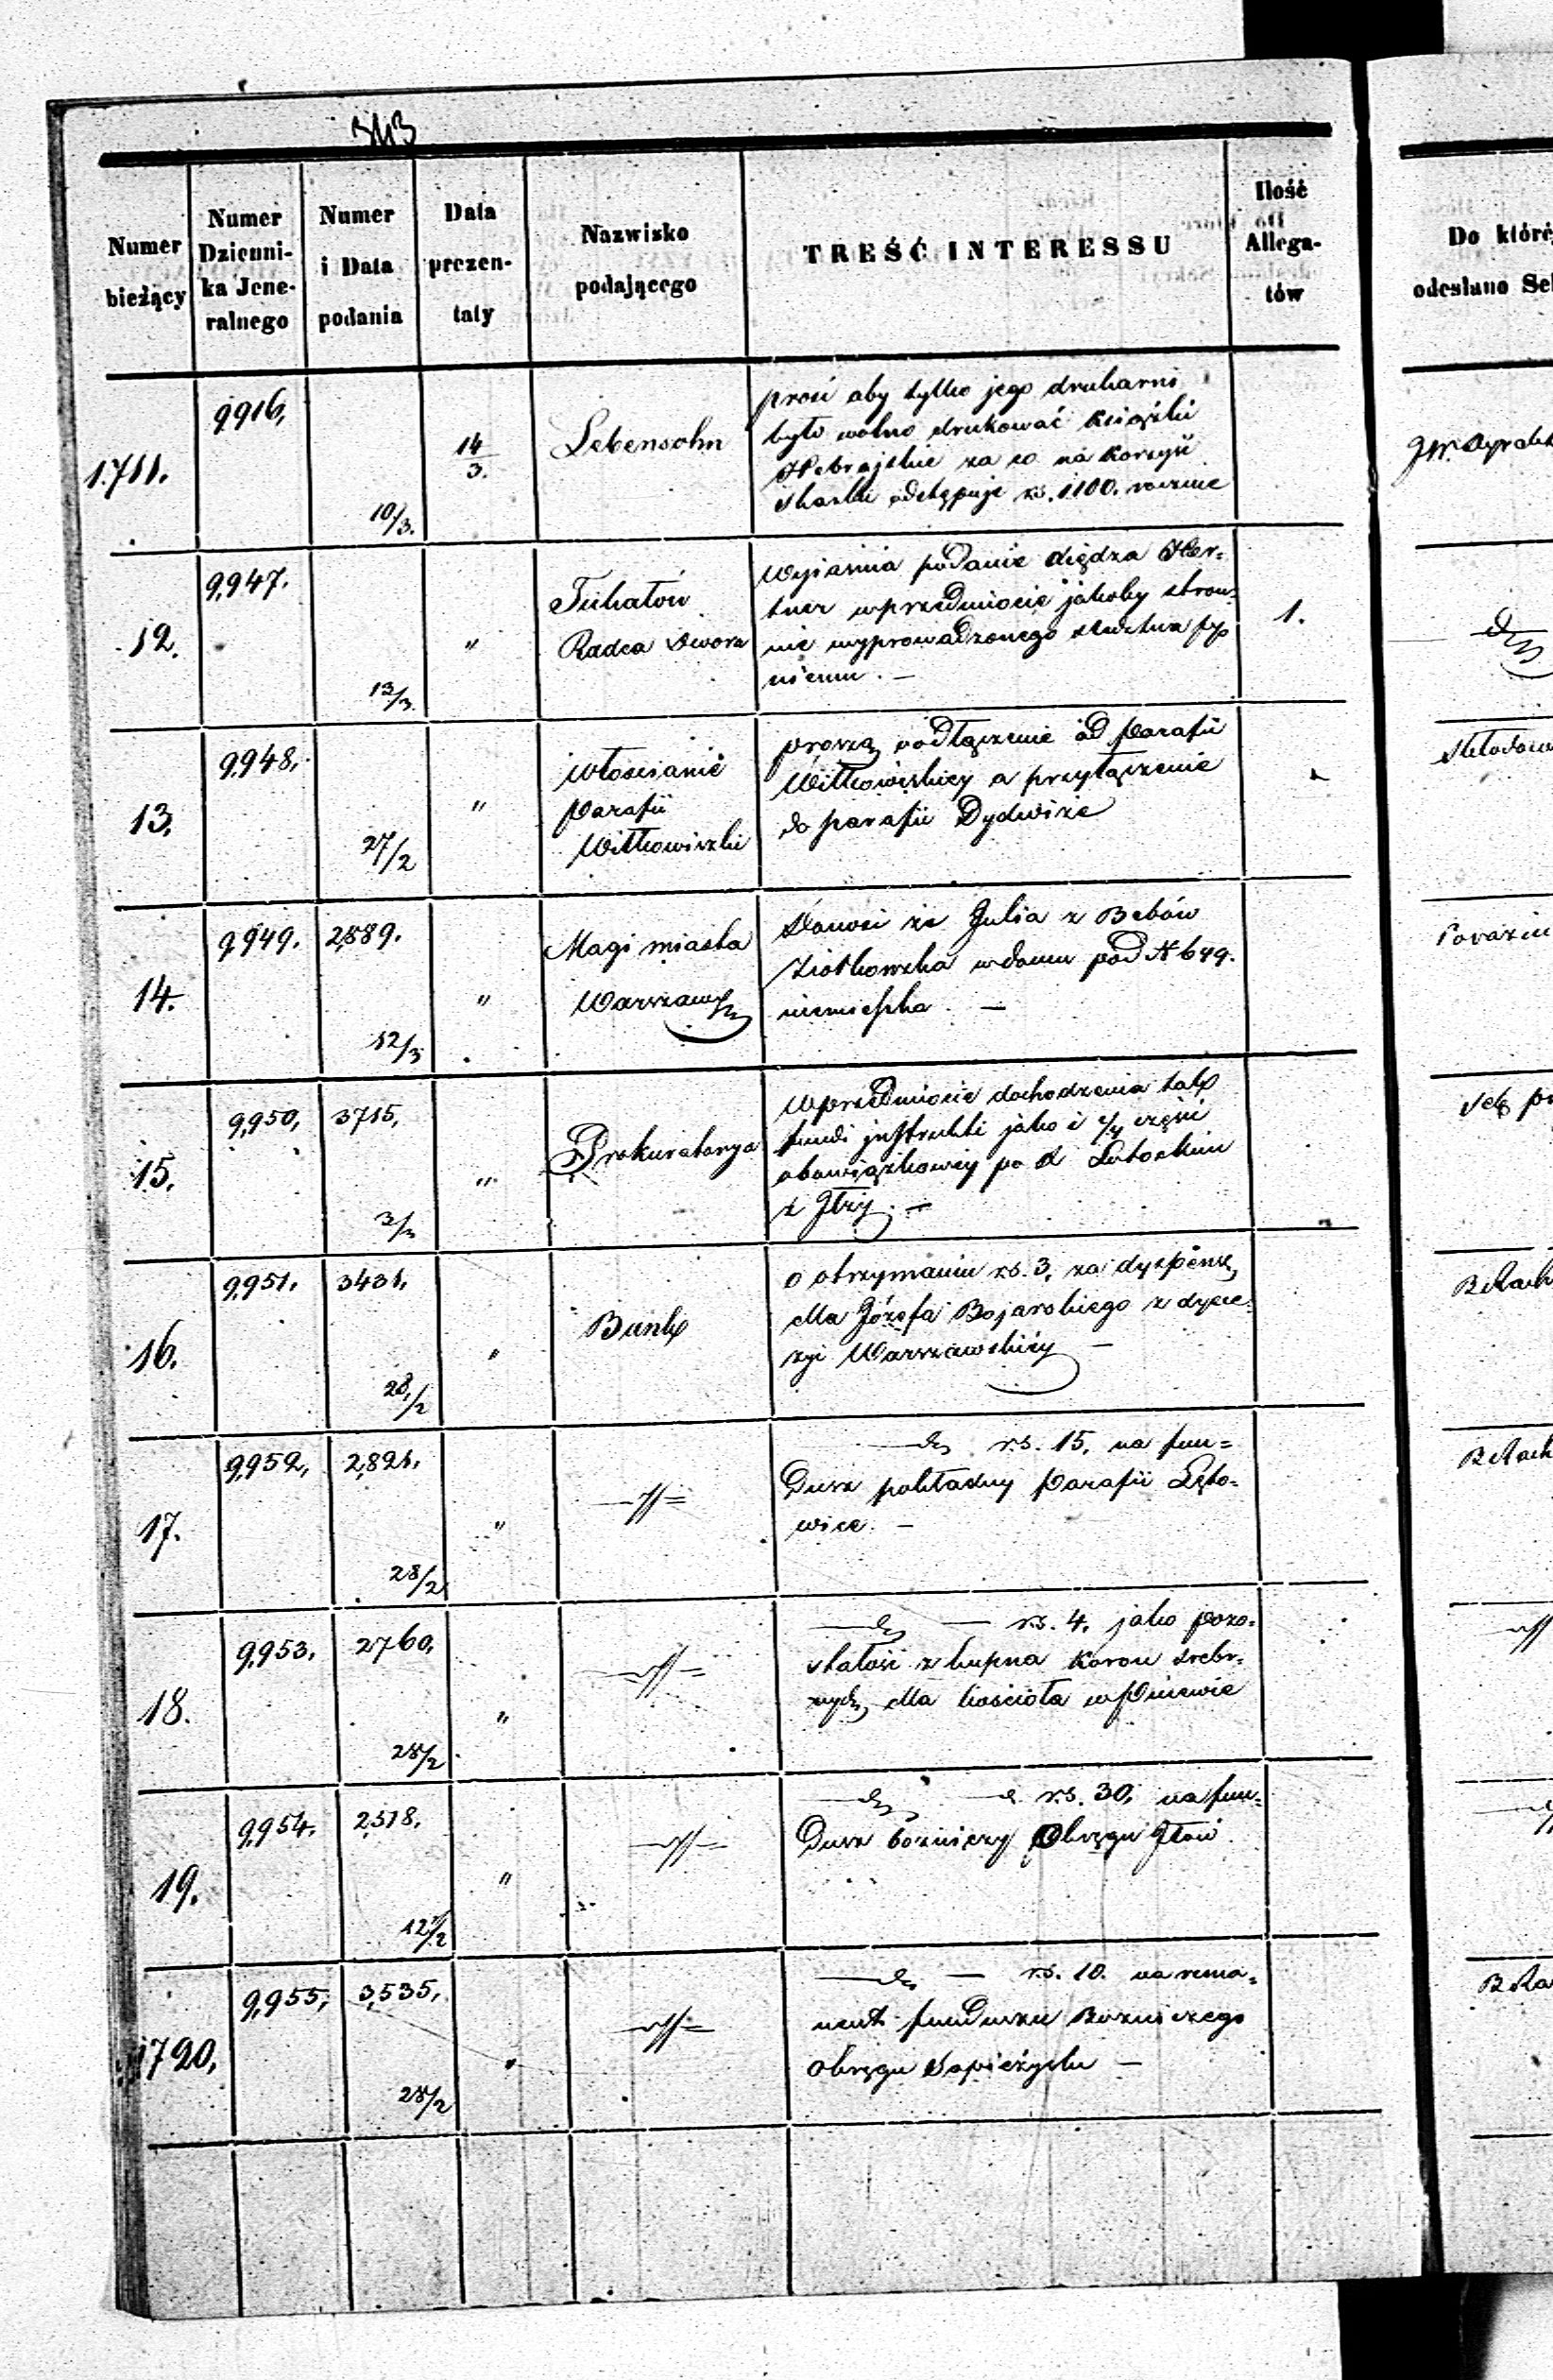 343
Numer bieżący
Numer Dzienni-ka Jene-ralnego
Numer i Data podania
Data prezen-taty
Nazwisko podającego
TREŚĆ INTERESSU
Ilość Allega-tów
Do które
odesłano Se
1.711.
9916,
10/3.
14/3.
Lebensohn
prosi aby tylko jego drukarni
było wolno drukować Książki
Hebrajskie za co na korzyść
Skarbu odstępuje rs. 1100. rocznie
12.
9,947.
13/3.
"
Radca Dworu
Wyjaśnia podanie Księdza Her-
tner w przedmiocie jakoby stron-
nie wyprowadzonego śledztwa pp
niemu. —
1.
13.
9,948,
27/2
"
Włościanie
Parafii
Wiłkowiszki
proszą o odłączenie od Parafii
Wiłkowiskiey a przyłączenie
do parafii Dydwiże
14.
9,949.
2,889.
12/3
"
Magi miasta
Warszawy
Donosi że Julia z Bebów
Ziółkowska w domu pod N 649.
niemieszka. —
15.
9,950,
3715,
3/3
"
Prokuratorya
W przedmiocie dochodzenia tak
fundi instrukti jako i 1/4 części
obowiązkowey po X Lutockim
z Iłży. —
16.
9,951.
3431,
28/2
"
Bank
o otrzymaniu rs. 3, za dyspensę
dla Józefa Bojarskiego z dyece-
zyi Warszawskiey —
17.
9,952,
2,821,
28/2
"
rs. 15, na fun-
dusz pokładny Parafii Łęto-
wice. —
18.
9,953.
2760,
28/2
"
— rs. 4, jako pozo-
stałość z kupna Koron srebr-
nych dla kościoła w Pniewie
19.
9,954.
2,518,
12/2
"
rs. 30, na fun-
dusz bóźniczy Okręgu Iłów
1720,
9,955,
3,535,
28/2
"
— rs. 10. na rema-
nent funduszu Bóżniczego
Okręgu Sapieżyszki —